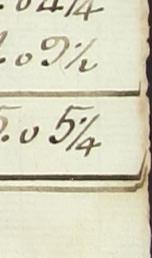 .04¼
.09½
5.05¼